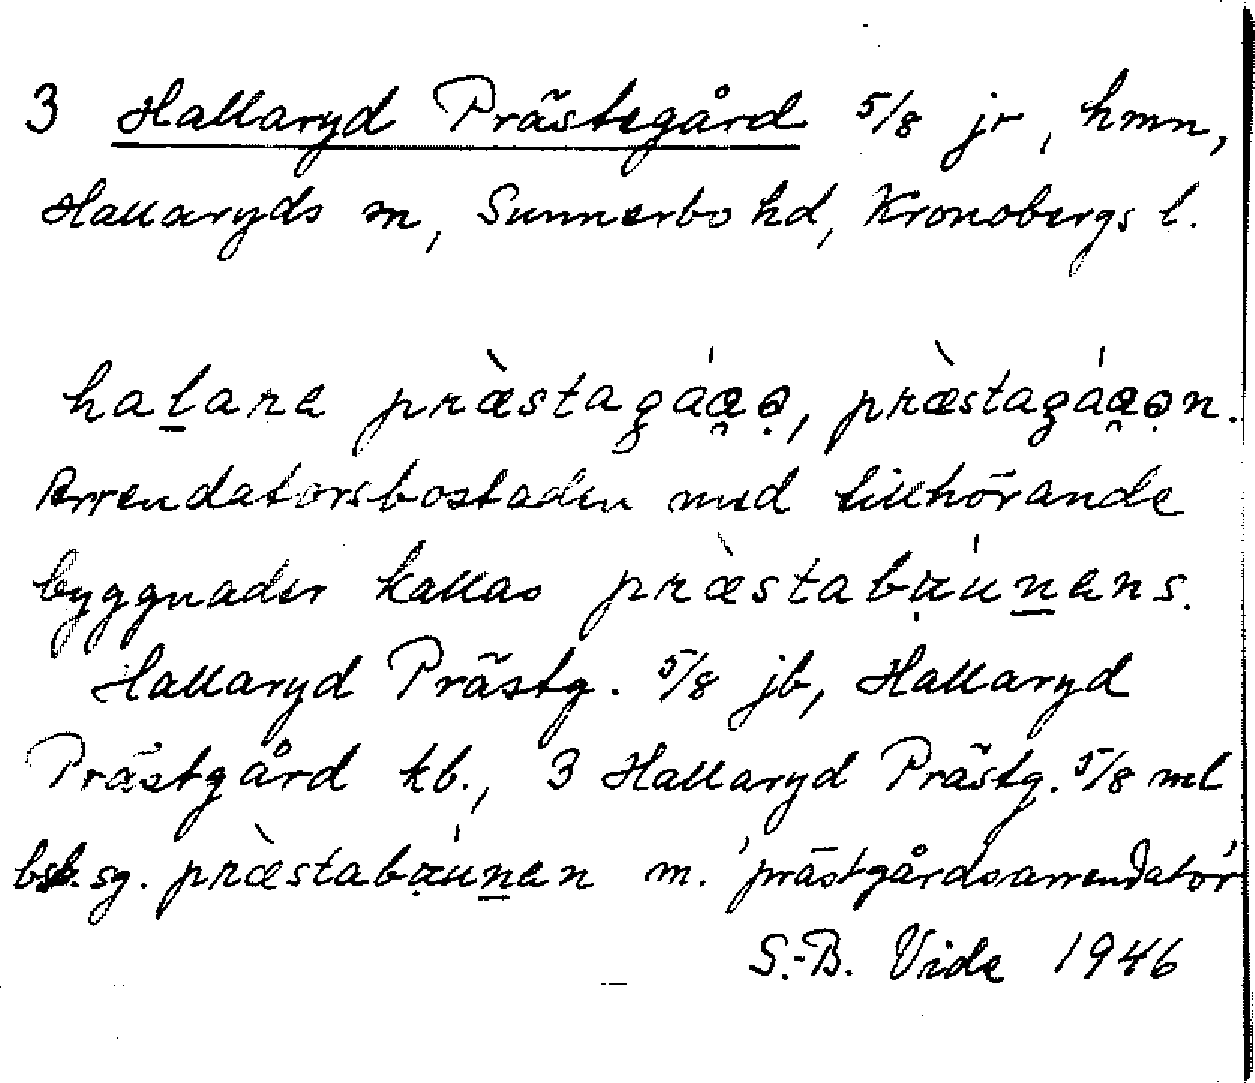 3 Hallaryd Prästegård 5/8 jr, hmn,
Hallaryds sn, Sunnerbo hd, Kronobergs l.
halare præ̀stagáæə, præ̀stagáæən.
Arrendatorsbostaden med tillhörande
byggnader kallas præ̀stabræúnens.
Hallaryd Prästg. 5/8 jb, Hallaryd
Prästgård kb., 3 Hallaryd Prästg. 5/8 ml
bst. sg. m. 'prästgårdsarrendator'
S.-B. Vide 1946